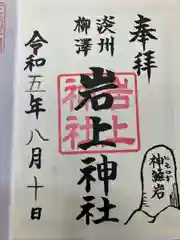 奉拝
淡州
柳澤
岩上神社
岩上
神社
令和五年八月十日
神籬岩